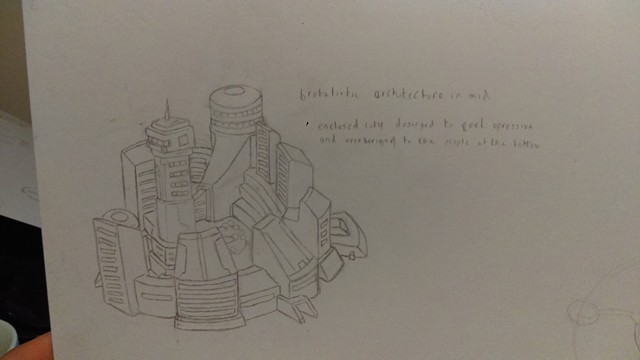 brutalistic architecture in mid
enclosed city designed to feel opressive
and to the people at the bottom